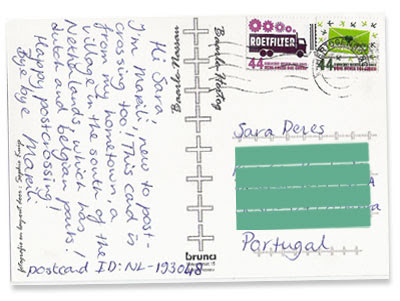 Hi Sara,
I'm Marieli, new to post-
crossing too! This card is
from my hometown, a
village in the south of the
Netherlands which has
dutch and belgian parts!
Happy postcrossing!
Bye bye Marieli
postcard ID: NL-193048
Baarle-Hertog
Baarle-Nassau
bruna
ROETFILTER
44
44
Sara Peres
Portugal